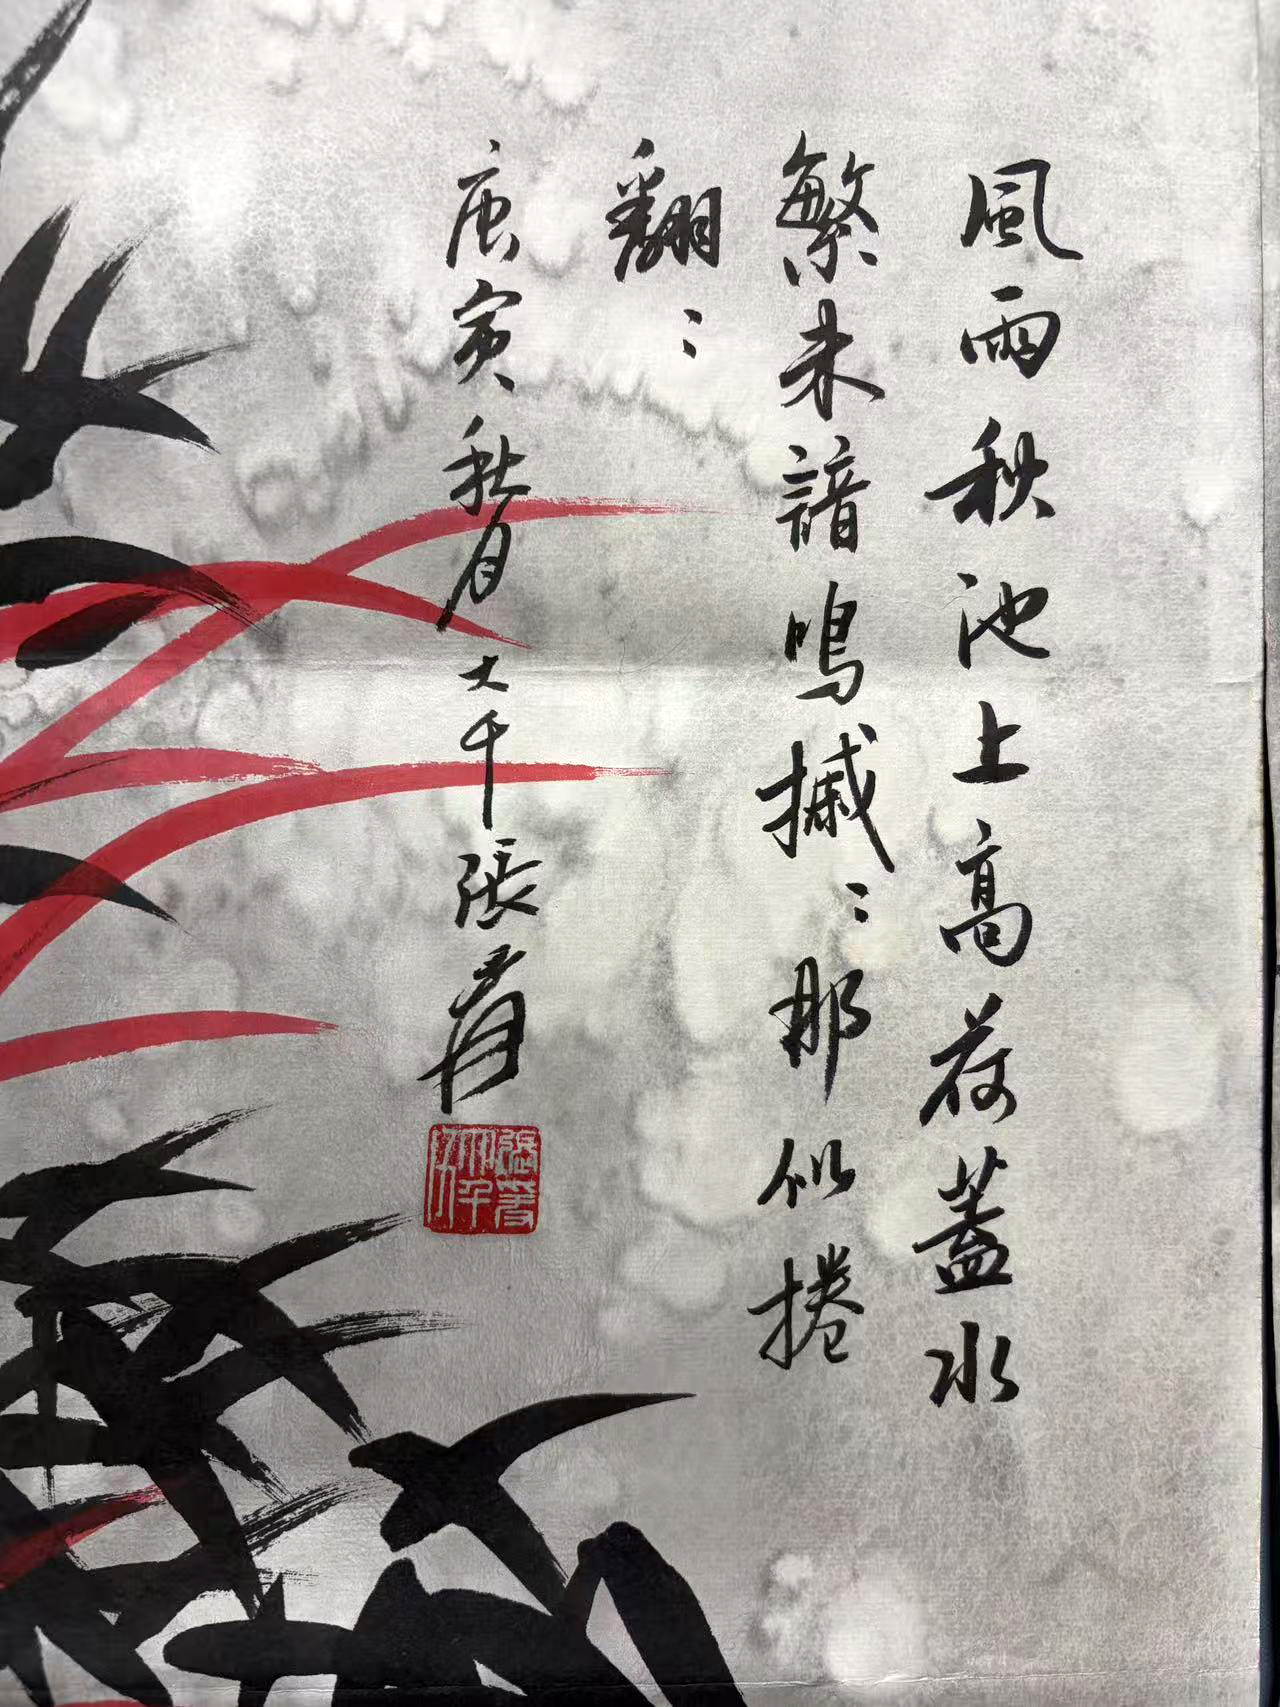 風雨秋池上高荷蓋水
繁未諳鳴摵〻那似捲
翻〻
庚寅秋月大千張爰
張爰
大千